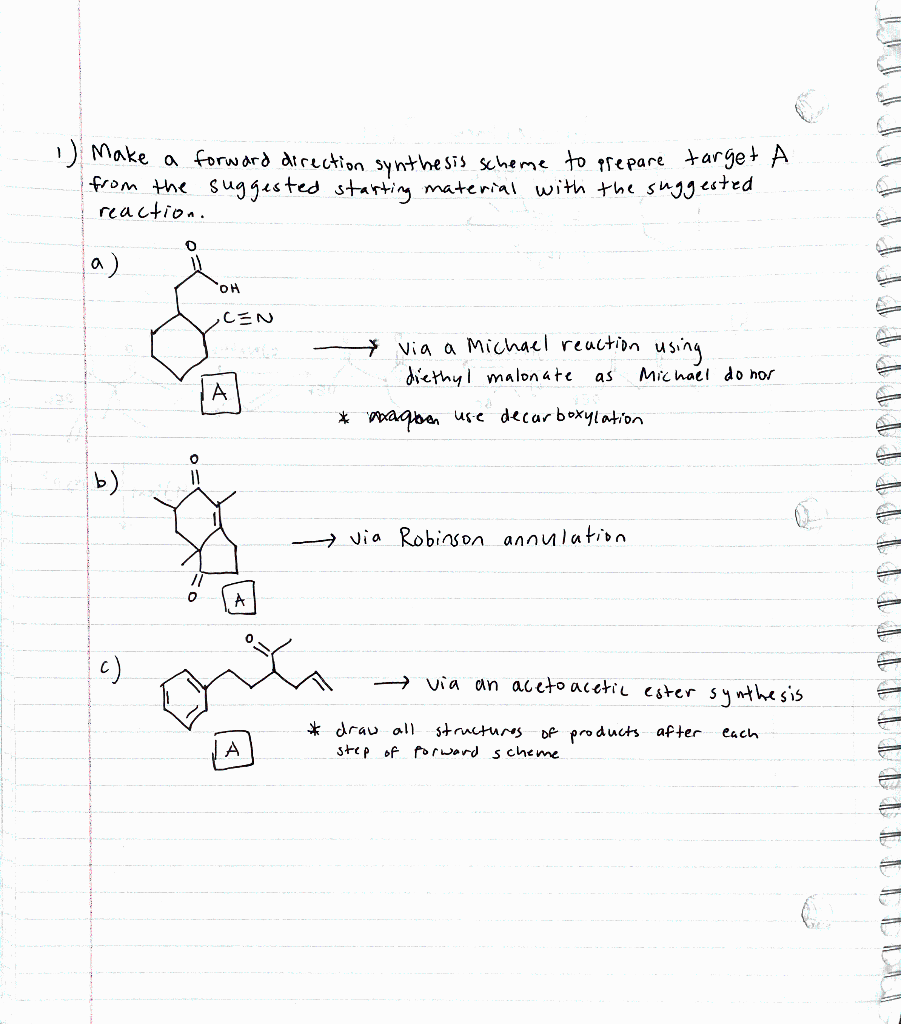 1) Make a forward direction synthesis scheme to prepare target A
from the suggested starting material with the suggested
reaction.
a)
O
OH
C≡N
→ via a Michael reaction using
diethyl malonate as Michael donor
A
* use decarboxylation
b)
O
→ via Robinson annulation
O
A
c)
O
→ via an acetoacetic ester synthesis
* draw all structures of products after each
step of forward scheme
A